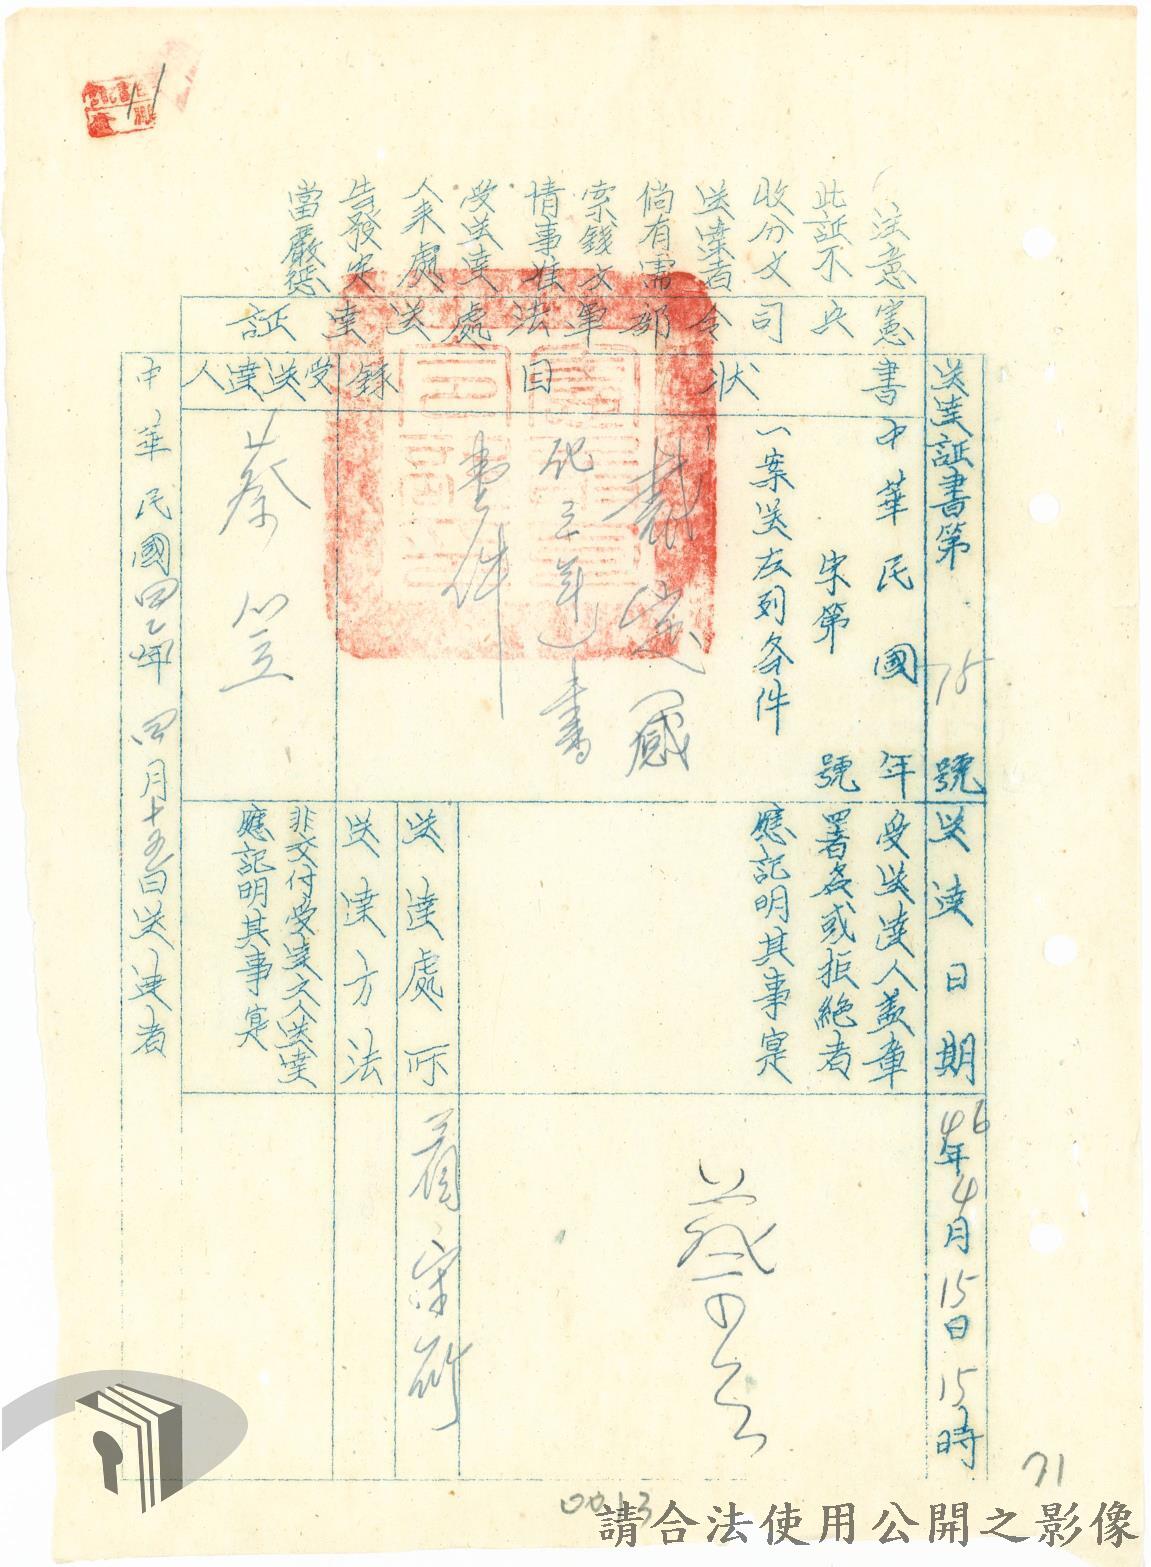 注意
此証不
收分文
送達者
倘有需
索錢文
情事准
受送達
人來處
告發定
當嚴懲
憲兵司令部軍法處送達証
書狀目錄
受送達人
送達証書第75號
中華民國 年
字第 號
一案送左列各件
書壹件
蔡
送達日期
46年4月15日15時
受送達人蓋章
署名或拒絕者
應記明其事寔
送達處所
送達方法
非交付受達之人送達
應記明其事寔
中華民國 年四月十五日送達者
71
請合法使用公開之影像